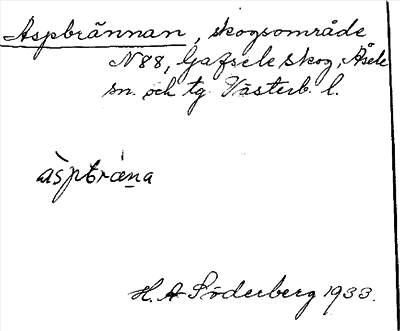 Aspbrännan, skogsområde
N 88, Gafsele skog, Åsele
sn. och tg Västerb. l.
àspbrána
H. A Söderberg 1933.